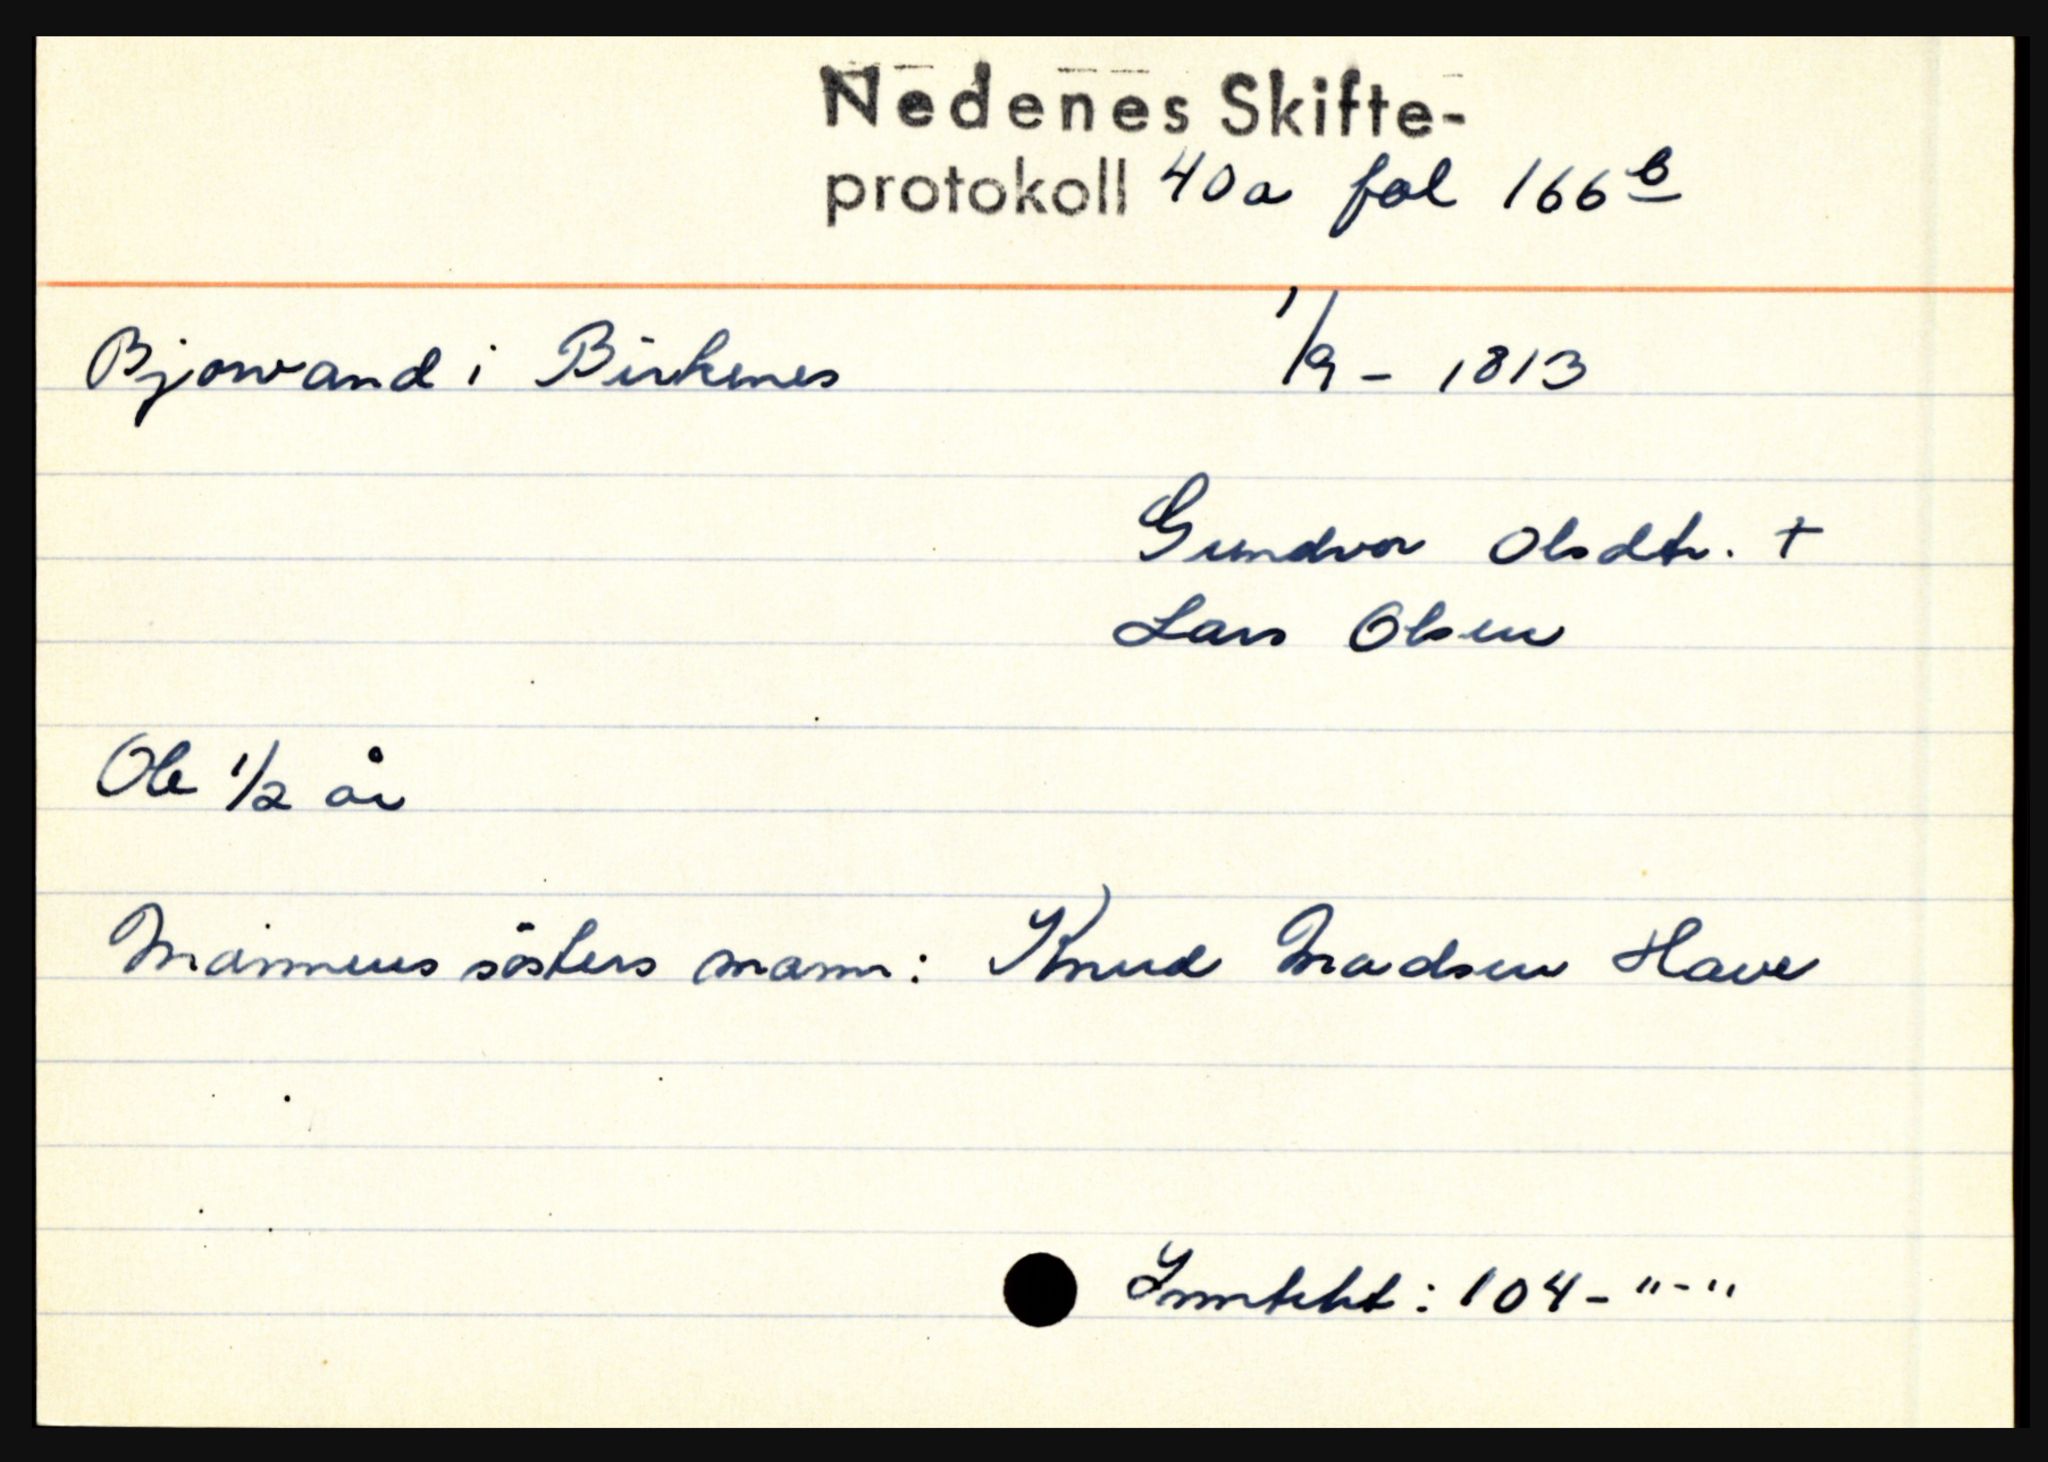 Nedenes Skifte-
protokoll 40a fol 166 b
Bjorvand i Birkenes 1/9 - 1813
Gundvor Olsdtr. +
Lars Olsen
Ole 1/2 år
Mannens søsters mann: Knud Madsen Have
Inntekt: 104 - " - "